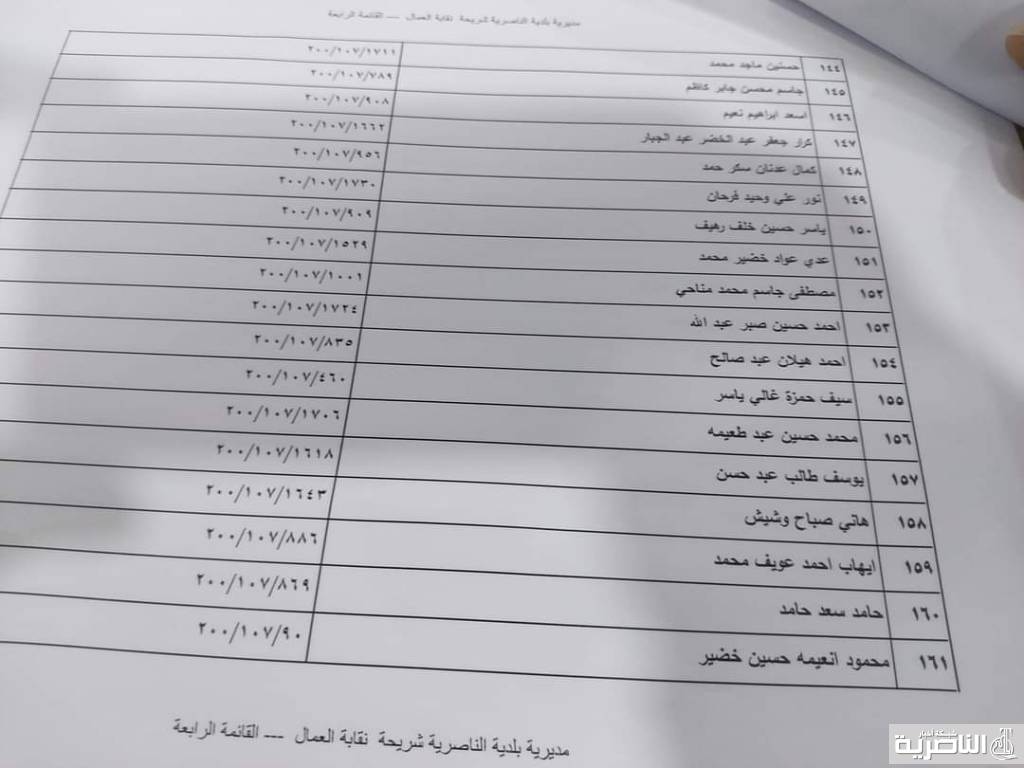 مديرية بلدية الناصرية شريحة نقابة العمال --- القائمة الرابعة
١٤٤ حسنين ماجد محمد ٢٠٠/١٠٧/١٧١١
١٤٥ جاسم محسن جابر كاظم ٢٠٠/١٠٧/٧٨٩
١٤٦ اسعد ابراهيم نعيم ٢٠٠/١٠٧/٩٠٨
١٤٧ كرار جعفر عبد الخضر عبد الجبار ٢٠٠/١٠٧/١٦٦٢
١٤٨ كمال عدنان سكر حمد ٢٠٠/١٠٧/٩٥٦
١٤٩ نور علي وحيد فرحان ٢٠٠/١٠٧/١٧٣٠
١٥٠ ياسر حسين خلف رهيف ٢٠٠/١٠٧/٩٠٩
١٥١ عدي عواد خضير محمد ٢٠٠/١٠٧/١٥٢٩
١٥٢ مصطفى جاسم محمد مناحي ٢٠٠/١٠٧/١٠٠١
١٥٣ احمد حسين صبر عبد الله ٢٠٠/١٠٧/١٧٢٤
١٥٤ احمد هيلان عبد صالح ٢٠٠/١٠٧/٨٣٥
١٥٥ سيف حمزة غالي ياسر ٢٠٠/١٠٧/٤٦٠
١٥٦ محمد حسين عبد طعيمه ٢٠٠/١٠٧/١٧٠٦
١٥٧ يوسف طالب عبد حسن ٢٠٠/١٠٧/١٦١٨
١٥٨ هاني صباح وشيش ٢٠٠/١٠٧/١٦٤٣
١٥٩ ايهاب احمد عويف محمد ٢٠٠/١٠٧/٨٨٦
١٦٠ حامد سعد حامد ٢٠٠/١٠٧/٨٦٩
١٦١ محمود انعيمه حسين خضير ٢٠٠/١٠٧/٩٠
مديرية بلدية الناصرية شريحة نقابة العمال --- القائمة الرابعة
شبكة اخبار
الناصرية